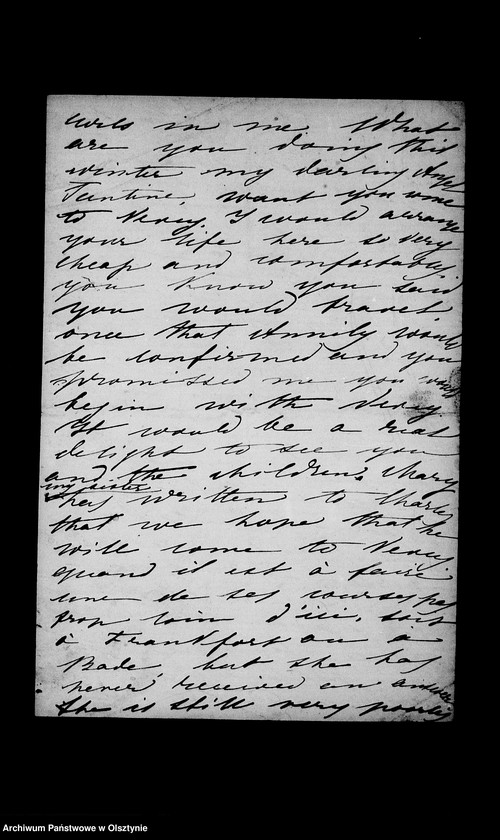 in me. What
are you doing this
winter my darling
Tantine, want you come
to Vevey, I would arrange
your life here so very
cheap and comfortable.
you know you said
you would travel
once that would
be confirmed and you
promissed me you would
begin with Vevey
It would be a real
delight to see you
and the children. Mary
my sister
has written to Charles
that we hope that he
will come to Vevey
quand il est à faire
une de ses courses pas
trop loin d'ici, soit
à Frankfort ou à
Bade, but she has
never received an answer
She is still very poorly
Archiwum Państwowe w Olsztynie